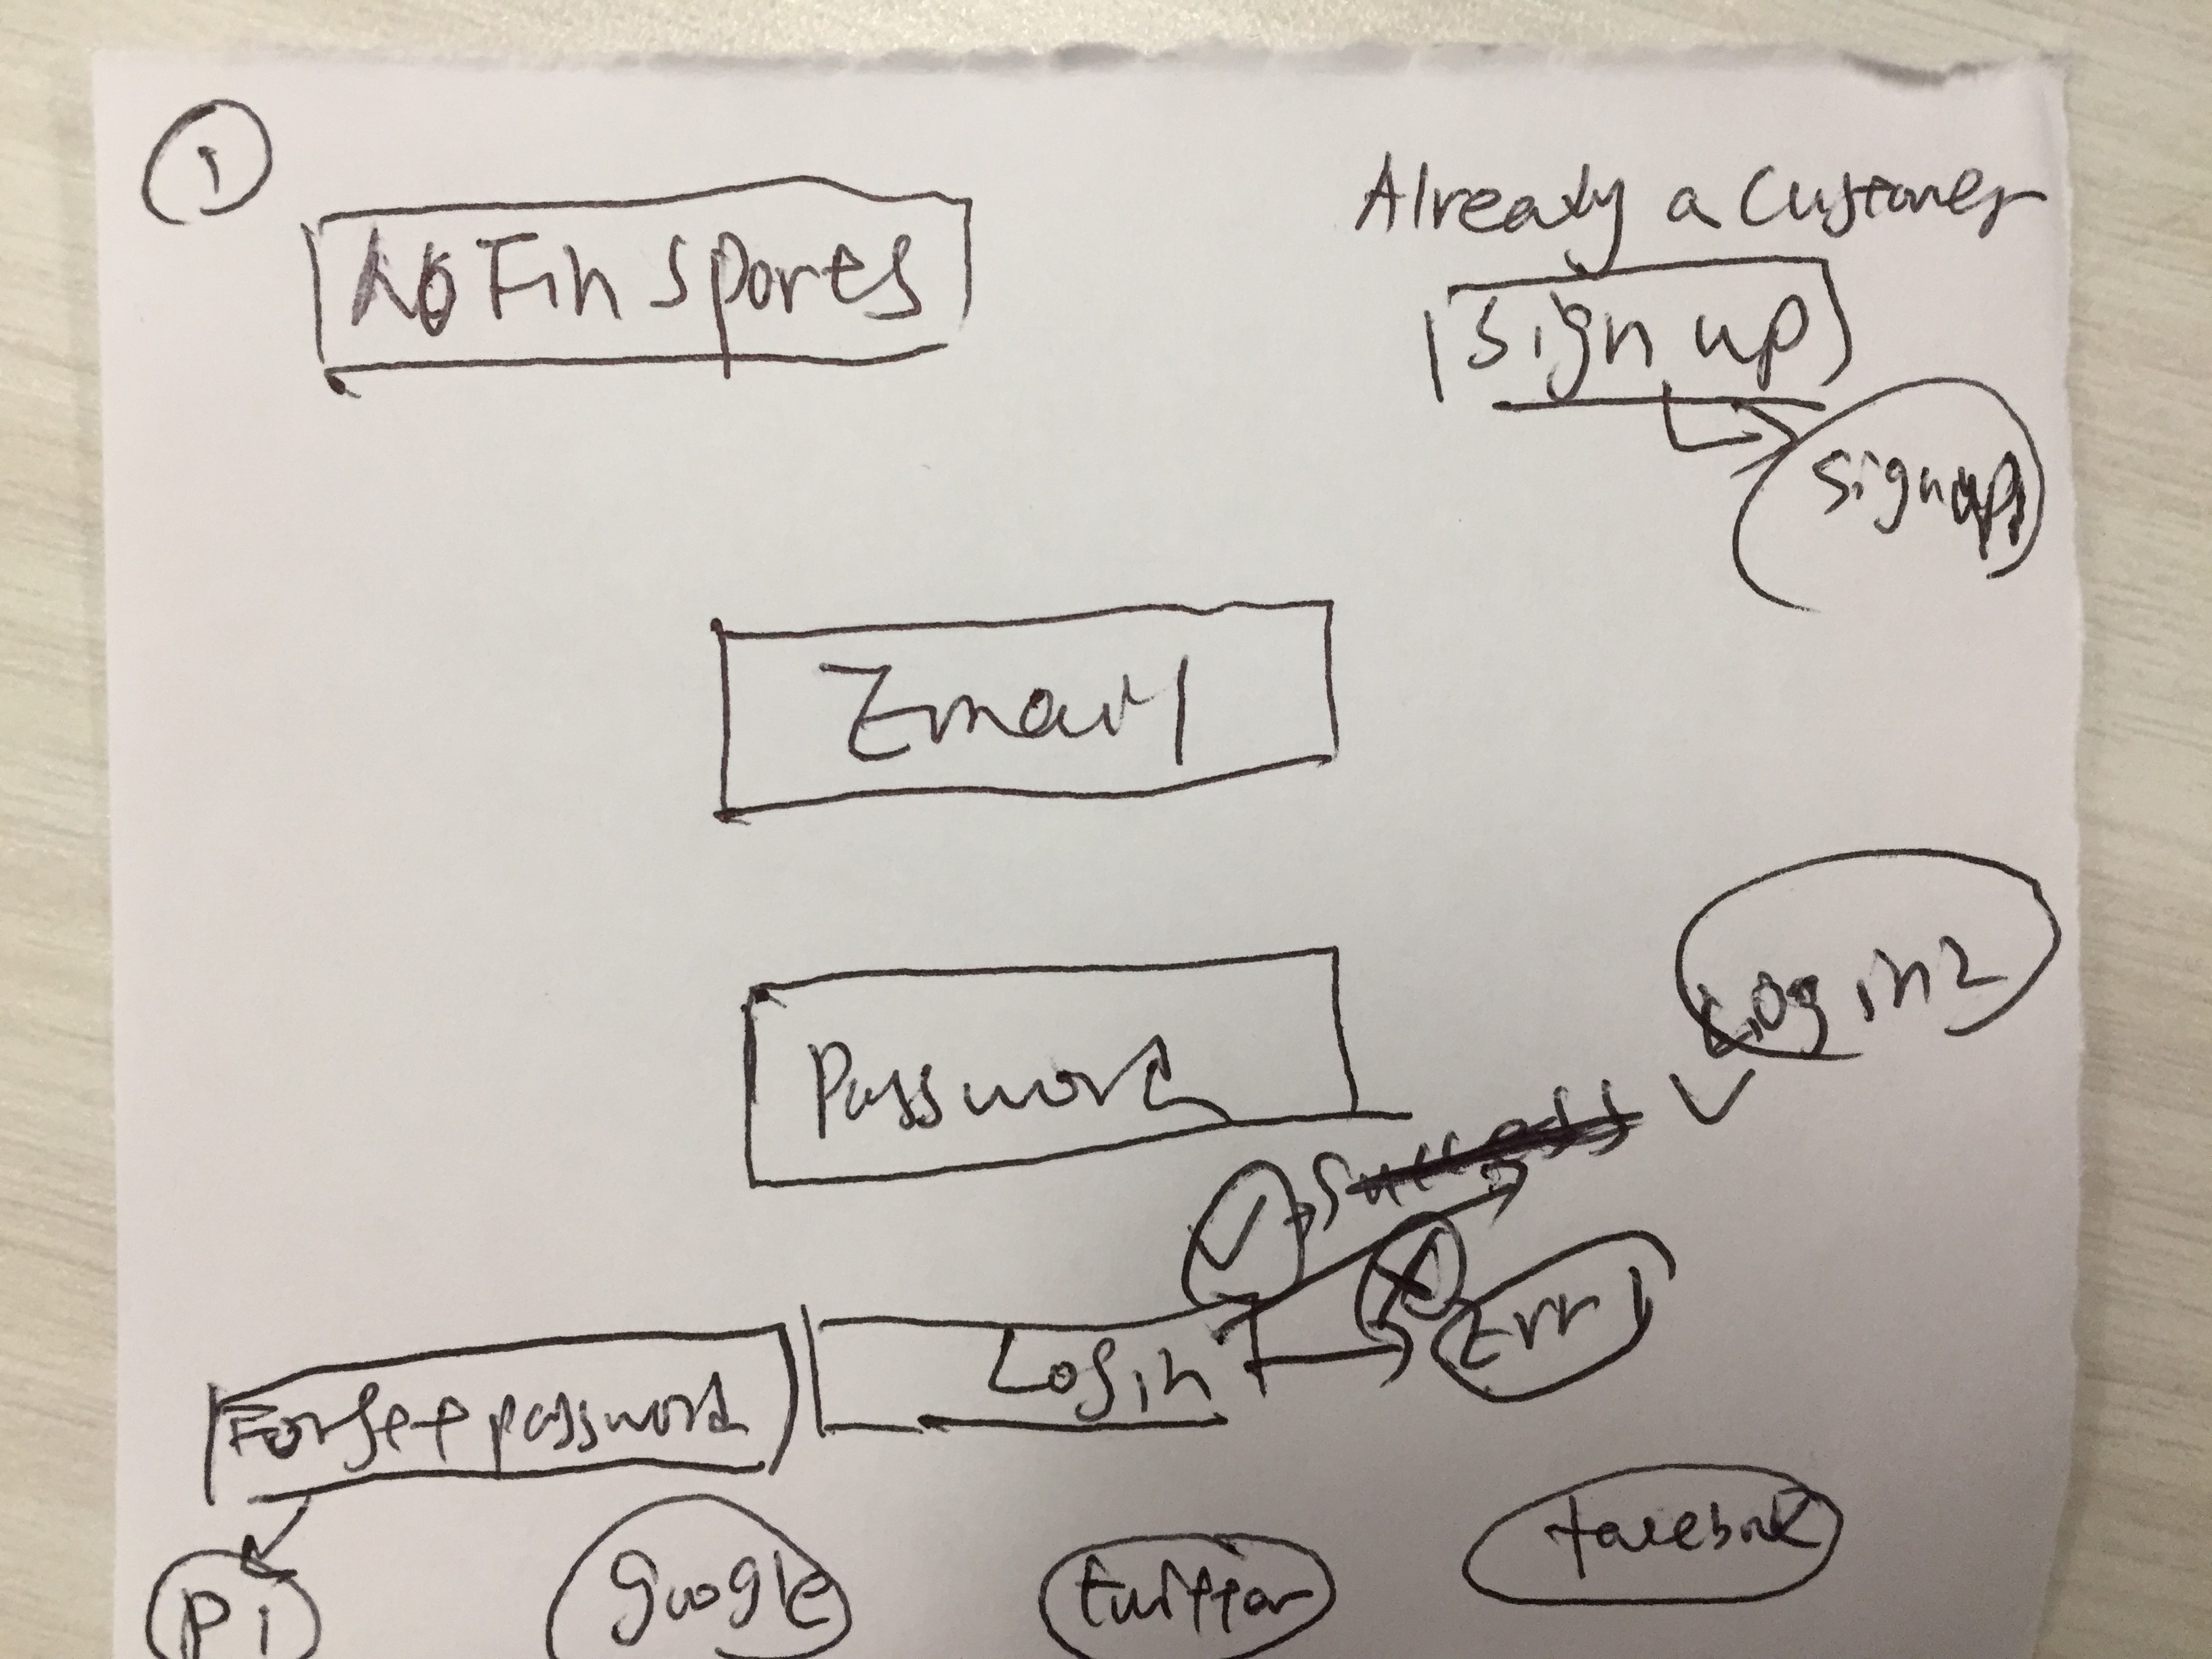 1
No Fin Sports
Already a Customer
Sign up
Signup1
Email
Password
Login2
Success
Err1
Login
Forget password
P1
google
twitter
facebook